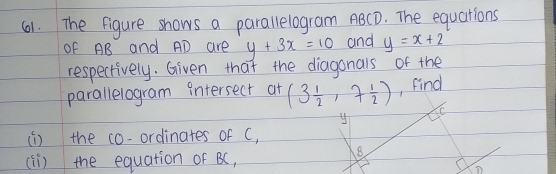 61. The figure shows a parallelogram ABCD. The equations
of AB and AD are y + 3x = 10 and y = x + 2
respectively. Given that the diagonals of the
parallelogram intersect at (3 1/2, 7 1/2), find
(i) the co-ordinates of C,
(ii) the equation of BC,
y
C
B
D